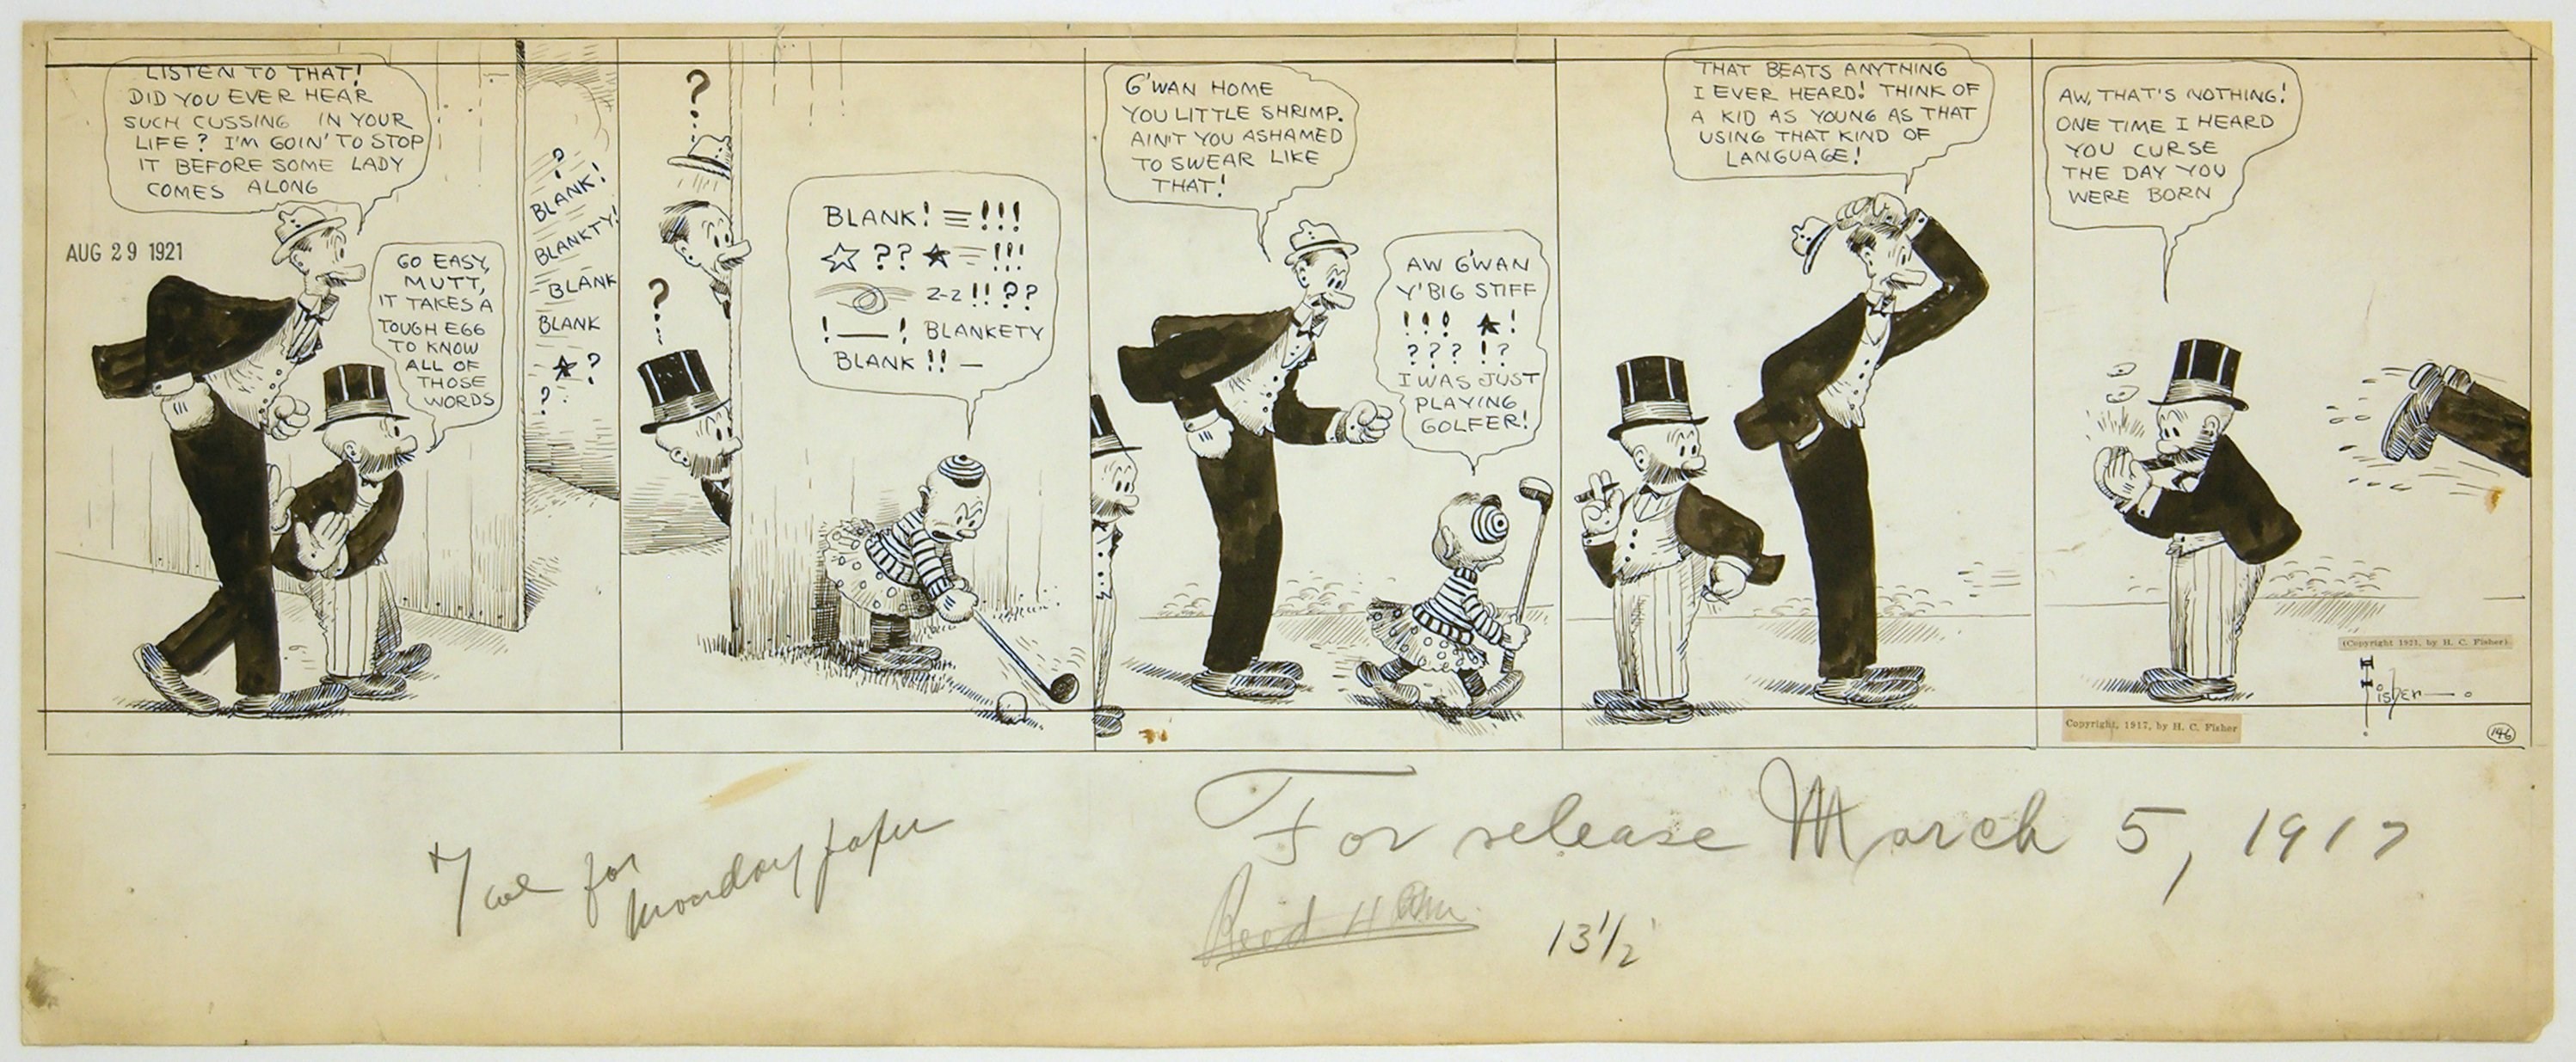 LISTEN TO THAT!
DID YOU EVER HEAR
SUCH CUSSING IN YOUR
LIFE? I'M GOIN' TO STOP
IT BEFORE SOME LADY
COMES ALONG
AUG 29 1921
GO EASY,
MUTT,
IT TAKES A
TOUGH EGG
TO KNOW
ALL OF
THOSE
WORDS
?
BLANK!
BLANKTY!
BLANK
BLANK
★?
?
?
?
BLANK! = !!!
☆ ?? ★ = !!!
2-2 !! ??
! — ! BLANKETY
BLANK !! —
G'WAN HOME
YOU LITTLE SHRIMP.
AIN'T YOU ASHAMED
TO SWEAR LIKE
THAT!
AW G'WAN
Y'BIG STIFF
!!! ★!
??? !?
I WAS JUST
PLAYING
GOLFER!
THAT BEATS ANYTHING
I EVER HEARD! THINK OF
A KID AS YOUNG AS THAT
USING THAT KIND OF
LANGUAGE!
AW, THAT'S NOTHING!
ONE TIME I HEARD
YOU CURSE
THE DAY YOU
WERE BORN
(Copyright 1921, by H. C. Fisher)
Fisher
Copyright, 1917, by H. C. Fisher
146
for
Monday paper
For release March 5, 1917
13 1/2